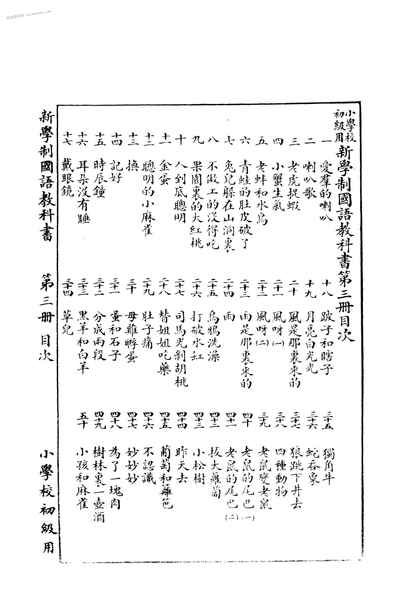 小學校初級用
新學制國語教科書第三冊目次
一 愛群的喇叭
二 喇叭歌
三 老虎捉蝦
四 小蟹生氣
五 老蚌和水鳥
六 青蛙的肚皮破了
七 兔兒躲在山洞裏
八 不做工的沒得吃
九 果園裏的大紅桃
十 人到底聰明
十一 金蛋
十二 聰明的小麻雀
十三
十四 記好
十五 時辰鐘
十六 耳朵沒有睡
十七 戴眼鏡
十八 跛子和瞎子
十九 月亮白光光
二十 風是那裏來的
二十一 風呀(一)
二十二 風呀(二)
二十三 雨是那裏來的
二十四 雨
二十五 烏鴉洗澡
二十六 打破水缸
二十七 司馬光剝胡桃
二十八 替姐姐吃藥
二十九 肚子痛
三十 母雞孵蛋
三十一 蛋和石子
三十二 分成兩段
三十三 黑羊和白羊
三十四 草兒
三十五 獨角牛
三十六 蛇吞象
三十七 狼跳下井去
三十八 四種動物
三十九 老鼠變老鼠
四十 老鼠的尾巴(一)
四十一 老鼠的尾巴(二)
四十二 拔大蘿蔔
四十三 小松樹
四十四 昨天去
四十五 葡萄和籬笆
四十六 不認識
四十七 妙妙妙
四十八 為了一塊肉
四十九 樹林裏一壺酒
五十 小孩和麻雀
新學制國語教科書 第三冊 目次 小學校初級用